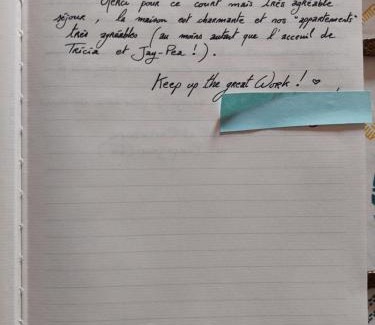 Merci pour ce court mais très agréable
séjour, la maison est charmante et nos "appartements"
très agréables (au moins autant que l'acceuil de
Tricia et Jay-Pea !).
Keep up the great Work ! ♡